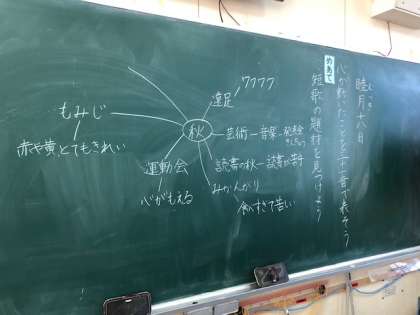 睦月十八日
心が動いたことを三十一音で表そう
めあて
短歌の題材を見つけよう
秋
遠足
ワクワク
芸術
音楽
読書の秋
みかんがり
食べすぎて苦い
運動会
心がもえる
もみじ
赤や黄、とてもきれい